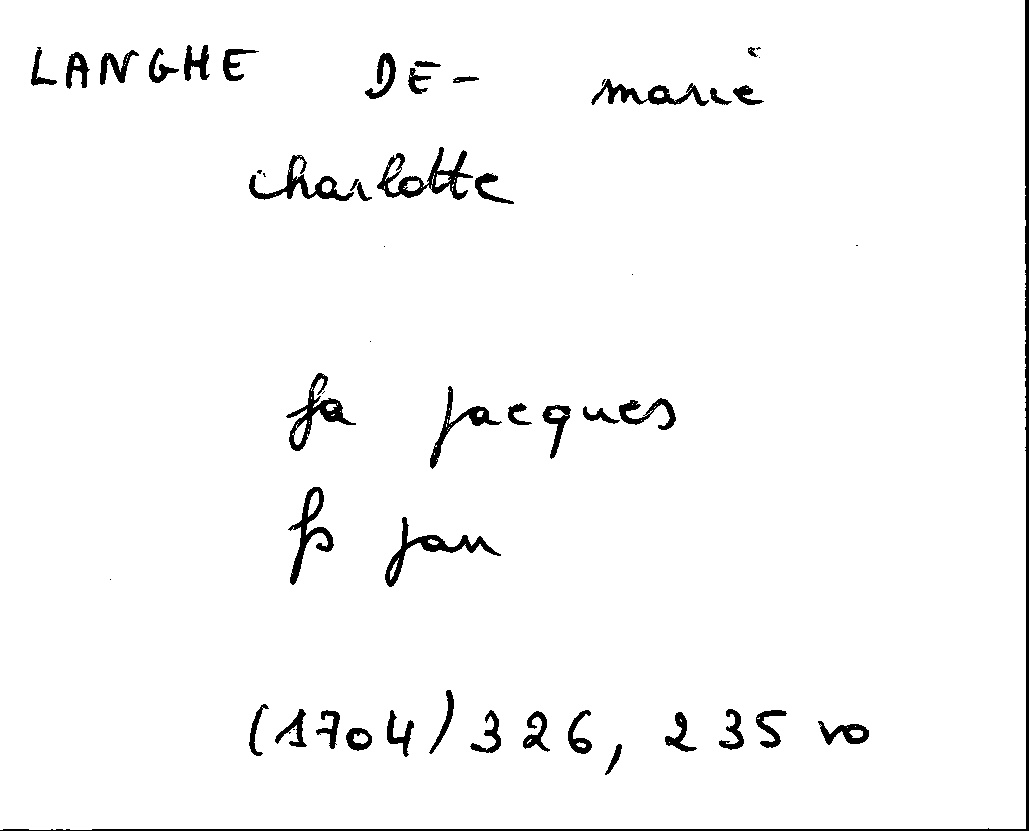 LANGHE DE- marie
charlotte
fa jacques
fs jan
(1704) 326, 235 vo